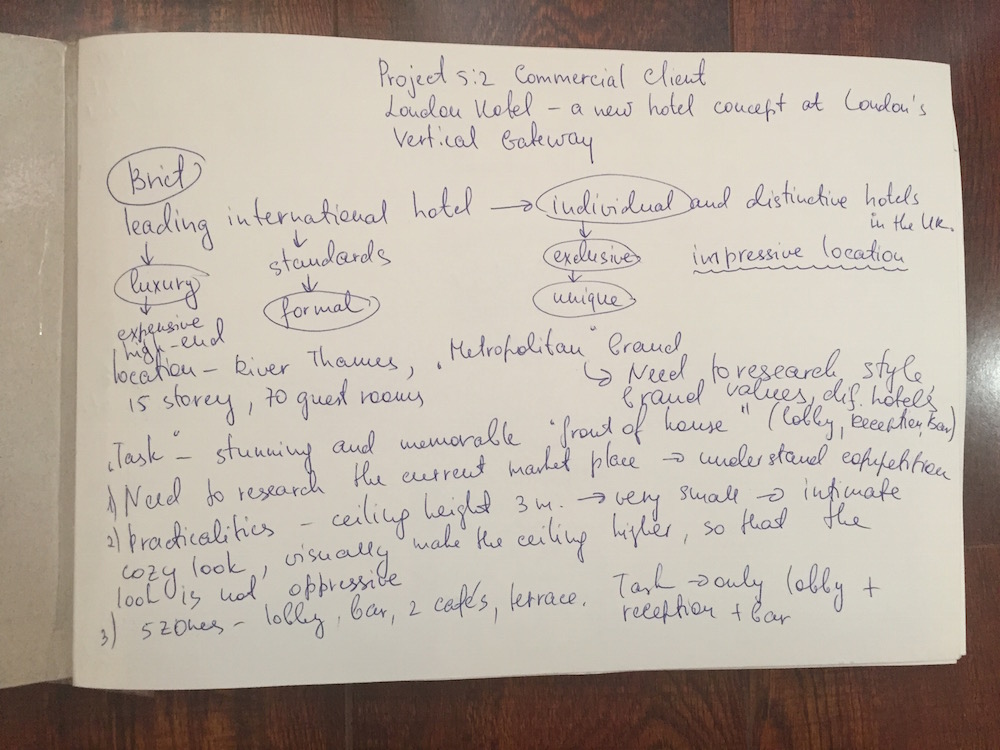 Project 5:2 Commercial Client
London Hotel – a new hotel concept at London's
Vertical Gateway
Brief
leading international hotel → individual and distinctive hotels
in the UK.
↓ ↓ ↓
luxury standards exclusive impressive location
↓ ↓ ↓
expensive formal unique
high-end
location – River Thames, „Metropolitan" brand
15 storey, 70 guest rooms ↳ Need to research style
brand values, dif. hotels
„Task" – stunning and memorable "front of house" (lobby, reception, bar)
1) Need to research the current market place → understand competition
2) Practicalities – ceiling height 3 m. → very small → intimate
cozy look, visually make the ceiling higher, so that the
look is not oppressive
3) 5 zones – lobby, bar, 2 cafés, terrace. Task → only lobby +
reception + bar